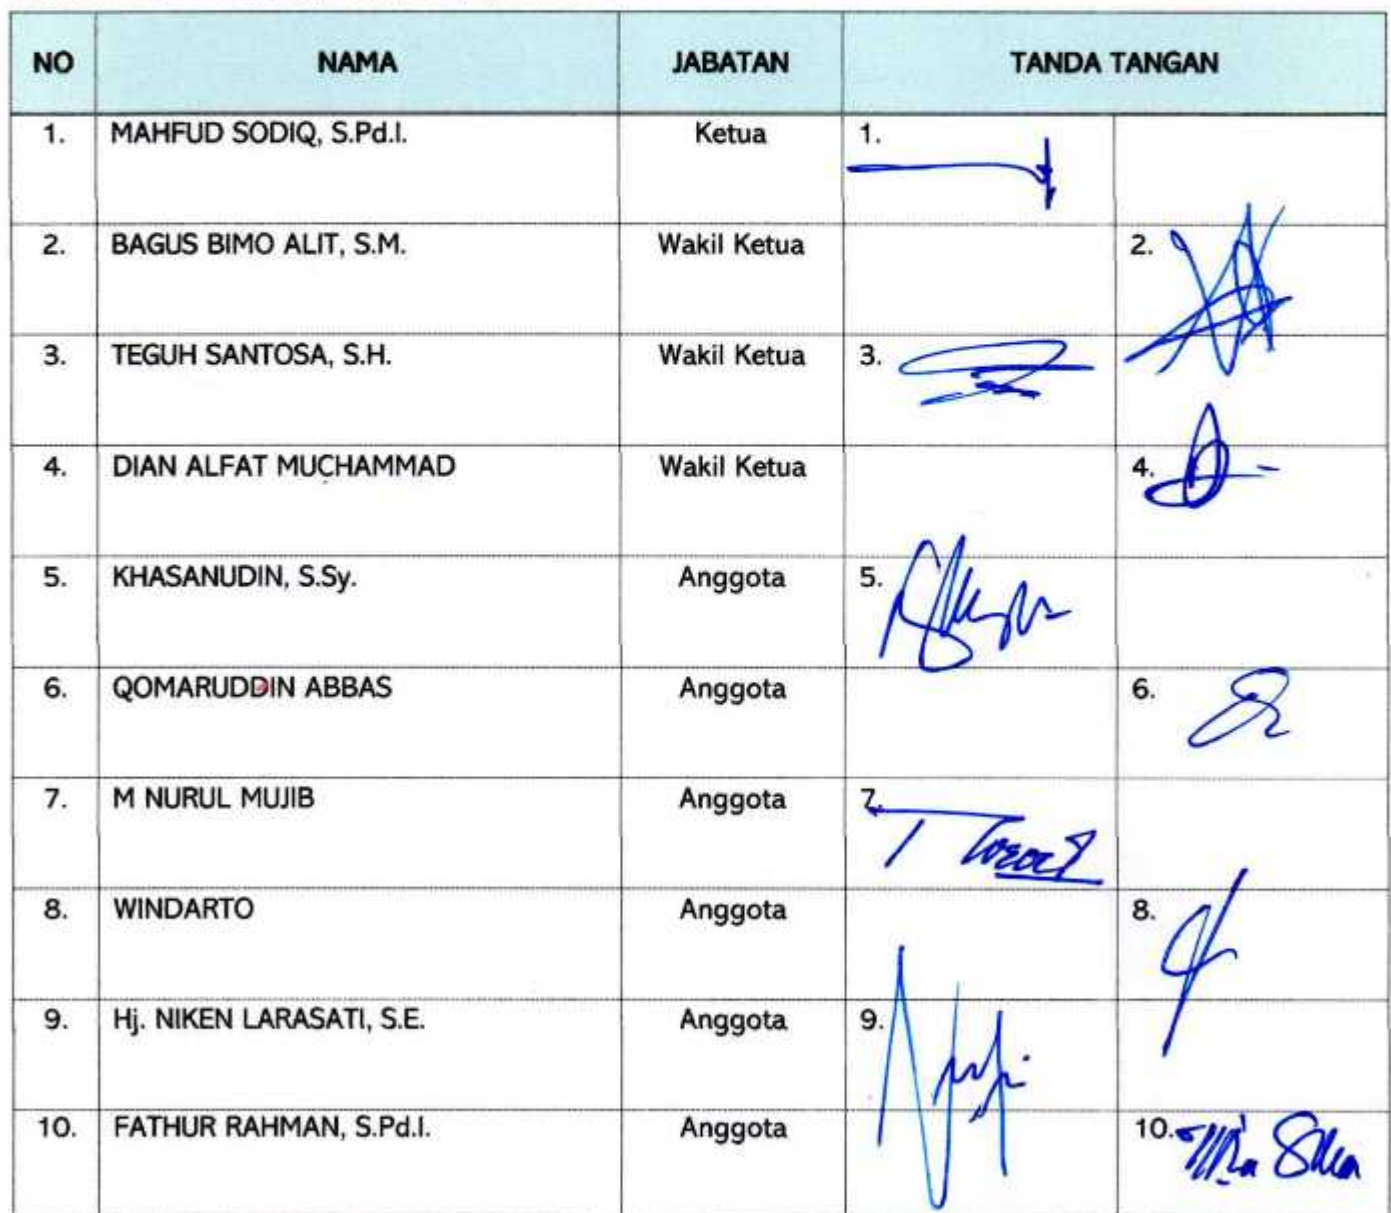 NO NAMA JABATAN TANDA TANGAN
1. MAHFUD SODIQ, S.Pd.I. Ketua 1.
2. BAGUS BIMO ALIT, S.M. Wakil Ketua 2.
3. TEGUH SANTOSA, S.H. Wakil Ketua 3.
4. DIAN ALFAT MUCHAMMAD Wakil Ketua 4.
5. KHASANUDIN, S.Sy. Anggota 5.
6. QOMARUDDIN ABBAS Anggota 6.
7. M NURUL MUJIB Anggota 7.
8. WINDARTO Anggota 8.
9. Hj. NIKEN LARASATI, S.E. Anggota 9.
10. FATHUR RAHMAN, S.Pd.I. Anggota 10.